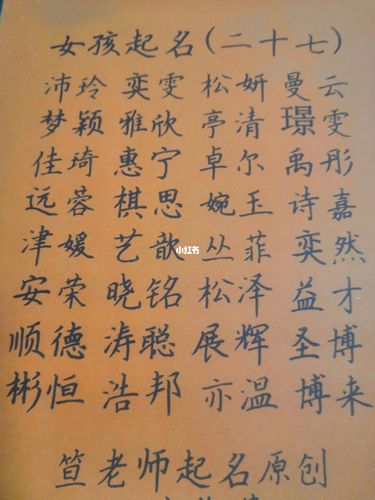 女孩起名(二十七)
沛玲 奕雯 松妍 曼云
梦颖 雅欣 亭清 璟雯
佳琦 惠宁 卓尔 禹彤
远蓉 棋思 婉玉 诗嘉
津媛 艺歆 丛菲 奕然
小红书
安荣 晓铭 松泽 益才
顺德 涛聪 展辉 圣博
彬恒 浩邦 亦温 博来
笪老师起名原创